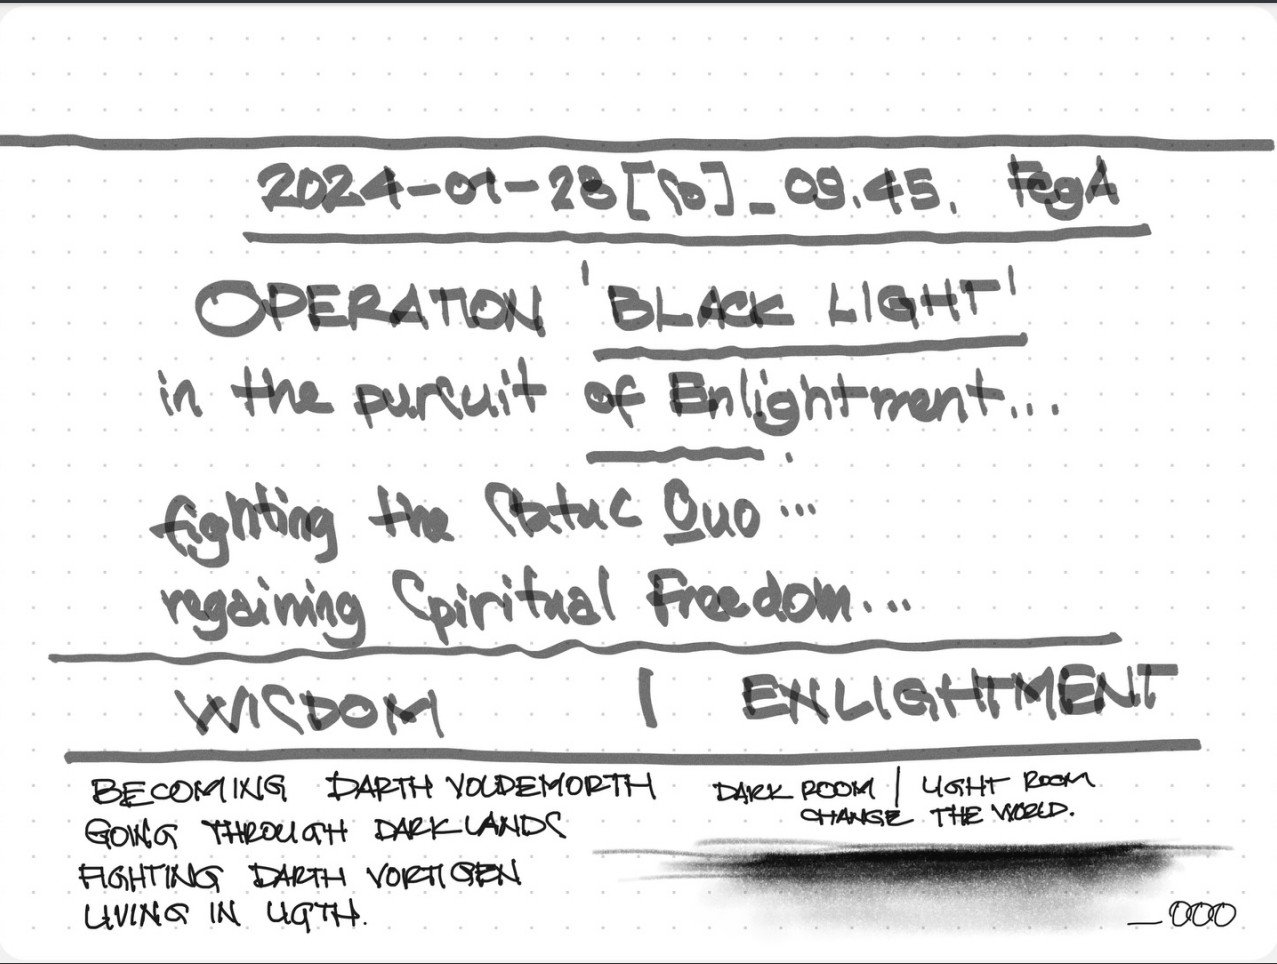 2024-01-28[So]_09.45. FegA
OPERATION 'BLACK LIGHT'
in the pursuit of Enlightment...
fighting the Status Quo...
regaining Spiritual Freedom...
WISDOM | ENLIGHTMENT
BECOMING DARTH VOLDEMORTH
GOING THROUGH DARKLANDS
FIGHTING DARTH VORTIGEN
LIVING IN LIGTH.
DARK ROOM | LIGHT ROOM
CHANGE THE WORLD.
_000